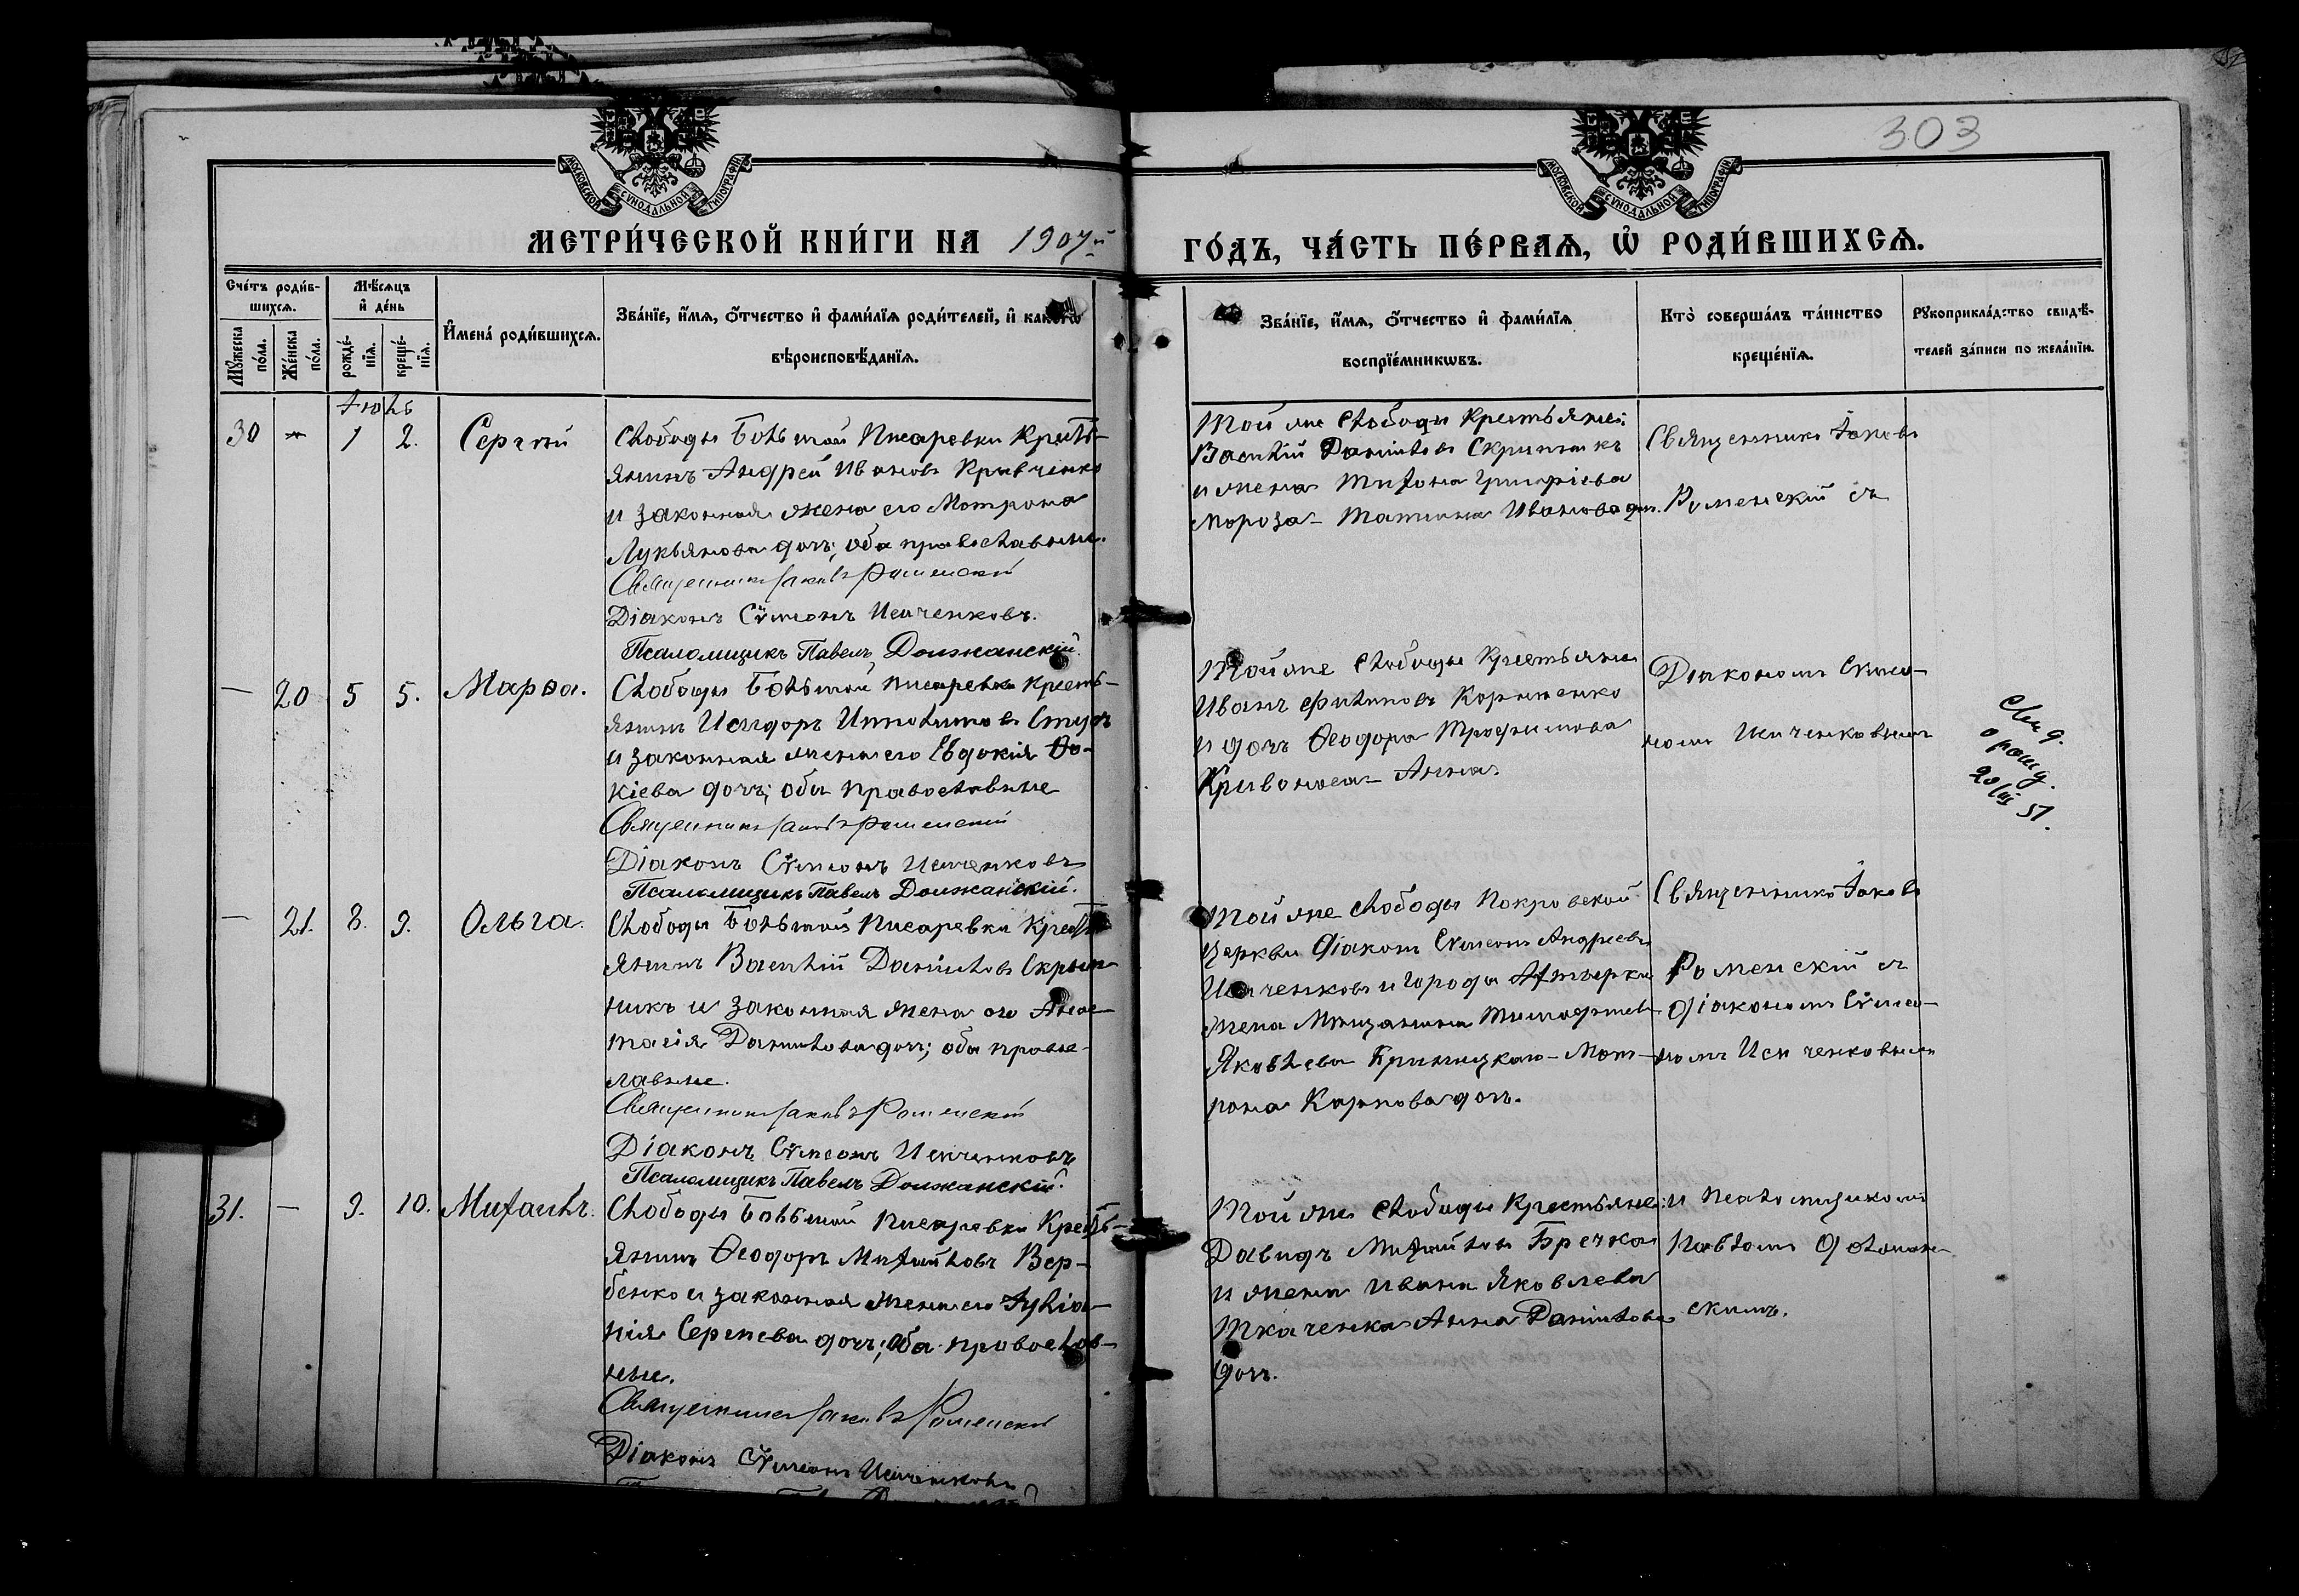 303
МОСКОВСКОЙ СѴНОДАЛЬНОЙ ТИПОГРАФІИ
МОСКОВСКОЙ СѴНОДАЛЬНОЙ ТИПОГРАФІИ
МЕТРИ́ЧЕСКОЙ КНИ́ГИ НА 1907й
ГО́ДЪ, ЧА́СТЬ ПЕ́РВАѦ, Ѡ҆ РОДИ́ВШИХСѦ.
Сче́тъ роди́в-
шихсѧ.
Мꙋ́жеска по́ла.
Же́нска по́ла.
Мѣ́сѧцъ
и҆ де́нь
рожде́-
нїѧ.
креще́-
нїѧ.
И҆мена́ роди́вшихсѧ.
Зва́нїе, и҆́мѧ, ѻ҆́тчество и҆ фами́лїѧ роди́телей, и҆ како́гѡ
вѣроисповѣ́данїѧ.
Зва́нїе, и҆́мѧ, ѻ҆́тчество и҆ фами́лїѧ
воспрїе́мникѡвъ.
Кто̀ соверша́лъ та́инство
креще́нїѧ.
Рꙋкоприкла́дство свидѣ́-
телей за́писи по жела́нїю.
Іюль
30 — 1 2. Сергій
Слободы Большой Писаревки Кресть-
янинъ Андрей Ивановъ Кравченко
и законная жена его Мотрона
Лукьянова дочь; оба православные.
Священникъ Іаковъ Роменскій
Діаконъ Сѷмеонъ Исиченковъ.
Псаломщикъ Павелъ Должанскій.
Той же слободы крестьяне:
Василій Даниловъ Скрипникъ
и жена Тихона Григоріева
Мороза - Татіана Иванова доч.
Священникъ Іаковъ
Роменскій съ
— 20 5 5. Марѳа.
Слободы Большой Писаревки Кресть-
янинъ Исидоръ Ипполитовъ
и законная жена его Евдокія Ѳо-
кіева дочь; оба православные
Священникъ Іаковъ Роменскій
Діаконъ Сѷмеонъ Исиченковъ
Псаломщикъ Павелъ Должанскій.
Той же слободы крестьяне
Иванъ Филиповъ
и дочь Ѳеодора Трофимова
Кривоноса - Анна.
Діакономъ Сѷмео-
номъ Исиченковымъ
20/III 51.
— 21. 8. 9. Ольга.
Слободы Большой Писаревки Кресть-
янинъ Василій Даниловъ Скрып-
никъ и законная жена его Анас-
тасія Данилова дочь; оба правос-
лавные.
Священникъ Іаковъ Роменскій
Діаконъ Сѷмеонъ Исиченковъ
Псаломщикъ Павелъ Должанскій.
Той же слободы Покровской
церкви діаконъ Сѷмеонъ Андреевъ
Исиченковъ и города Ахтырки
жена мѣщанина Тимофея
Яковлева Криницкаго - Мот-
рона Карпова дочь.
Священникъ Іаковъ
Роменскій съ
діакономъ Сѷмео-
номъ Исиченковымъ
31. — 9. 10. Михаилъ.
Слободы Большой Писаревки Кресть-
янинъ Ѳеодоръ Михайловъ Вер-
бенко и законная жена его Іуліа-
нія Сергіева дочь; оба православ-
ные.
Священникъ Іаковъ Роменскій
Діаконъ Сѷмеонъ Исиченковъ
Той же слободы крестьяне:
Давидъ Михайловъ Бречка
и жена Ивана Яковлева
Ткаченка Анна Данилова
дочь.
и псаломщикомъ
Павломъ Должан-
скимъ.